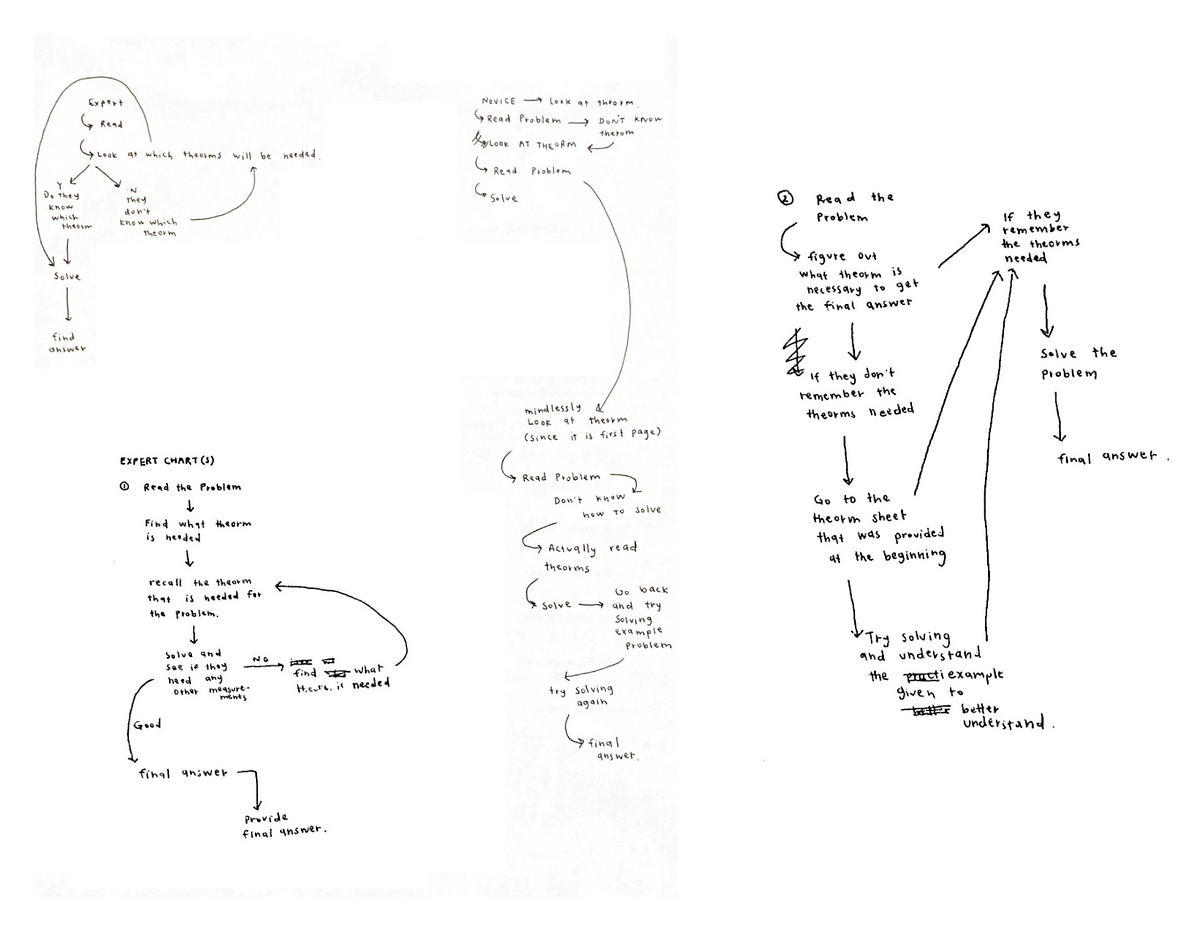 Expert
Read
Look at which theorms will be needed.
Y
Do they
know
which
theorm
N
they
don't
know which
theorm
Solve
find
answer
NOVICE → Look at theorm.
Read Problem → DON'T KNOW
therom
LOOK AT THEORM
Read Problem
Solve
mindlessly
Look at theorm
(since it is first page)
Read Problem
Don't know
how to solve
Actually read
theorms
Solve → Go back
and try
solving
example
problem
try solving
again
final
answer.
EXPERT CHART(S)
① Read the Problem
Find what theorm
is needed
recall the theorm
that is needed for
the problem.
Solve and
see if they
need any
other measure-
ments
NO
find what
is needed
Good
final answer
Provide
final answer.
② Read the
Problem
figure out
what theorm is
necessary to get
the final answer
If they don't
remember the
theorms needed
Go to the
theorm sheet
that was provided
at the beginning
Try solving
and understand
the example
given to
better
understand.
If they
remember
the theorms
needed
Solve the
Problem
final answer.